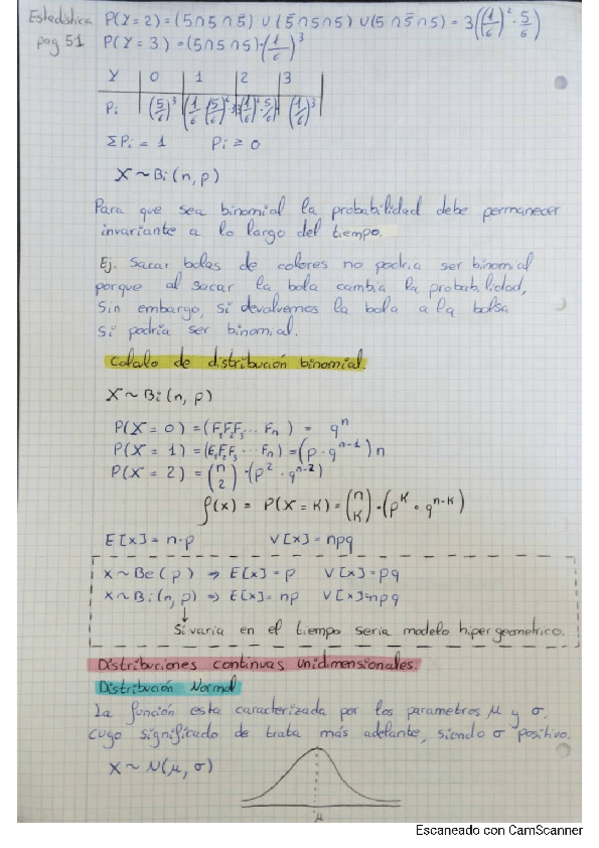 Estadística P(Y=2) = (5∩5∩5̄) ∪ (5̄∩5∩5) ∪ (5∩5̄∩5) = 3((1/6)²·5/6)
pag 51 P(Y=3) = (5∩5∩5)·(1/6)³
Y 0 1 2 3
Pi (5/6)³ (1/6·(5/6)² (1/6)²·5/6) (1/6)³
ΣPi = 1 Pi ≥ 0
X ~ Bi (n, p)
Para que sea binomial la probabilidad debe permanecer
invariante a lo largo del tiempo.
Ej. Sacar bolas de colores no podria ser binomial
porque al sacar la bola cambia la probabilidad,
Sin embargo, si devolvemos la bola a la bolsa
si podria ser binomial.
Calculo de distribución binomial.
X ~ Bi (n, p)
P(X = 0) = (F₁F₂F₃... Fn) = qⁿ
P(X = 1) = (E₁F₂F₃... Fn) = (p · qⁿ⁻¹) n
P(X = 2) = (n 2) · (p² · qⁿ⁻²)
f(x) = P(X = K) = (n K) · (p^K · q^(n-K))
E[x] = n·p V[x] = npq
X ~ Be (p) ⇒ E[x] = p V[x] = pq
X ~ Bi (n, p) ⇒ E[x] = np V[x] = npq
↓
Si varia en el tiempo seria modelo hipergeometrico.
Distribuciones continuas unidimensionales.
Distribución Normal
La función esta caracterizada por los parametros μ y σ,
cuyo significado de trata más adelante, siendo σ positivo.
X ~ N(μ, σ)
μ
Escaneado con CamScanner